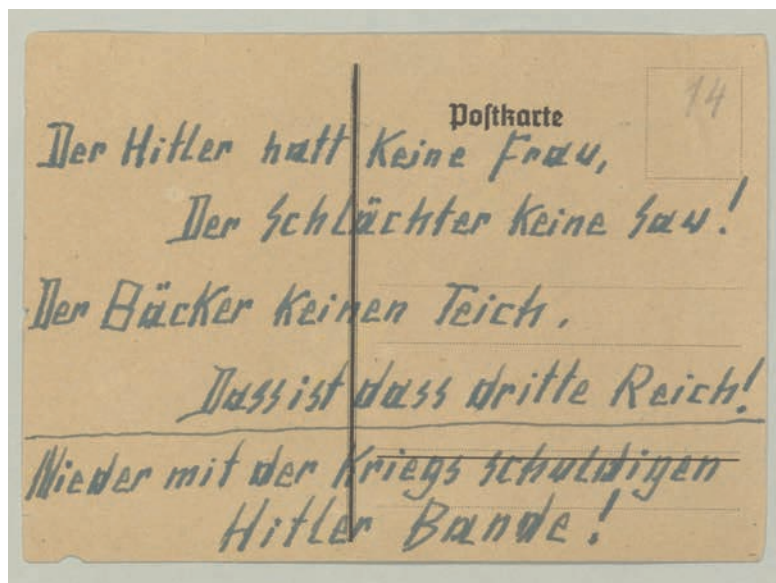 Postkarte
14
Der Hitler hatt Keine Frau,
Der Schlächter Keine Sau!
Der Bäcker Keinen Teich,
Dass ist dass dritte Reich!
Nieder mit der Kriegs schuldigen
Hitler Bande!